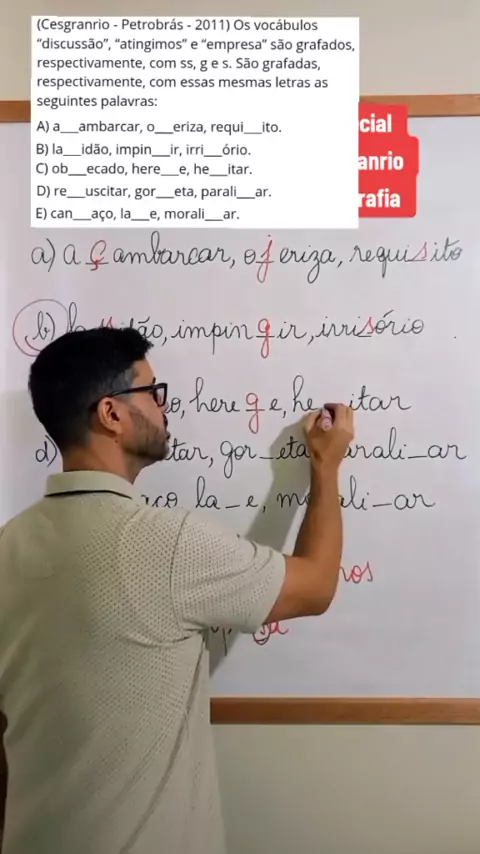 (Cesgranrio - Petrobrás - 2011) Os vocábulos
“discussão”, “atingimos” e “empresa” são grafados,
respectivamente, com ss, g e s. São grafadas,
respectivamente, com essas mesmas letras as
seguintes palavras:
A) a___ambarcar, o___eriza, requi___ito.
B) la___idão, impin___ir, irri___ório.
C) ob___ecado, here___e, he___itar.
D) re___uscitar, gor___eta, parali___ar.
E) can___aço, la___e, morali___ar.
cial
anrio
rafia
a) açambarcar, ojeriza, requisito
b) impingir, irrisório
herege, he itar
d) tar, gor_eta arali_ar
aço la_e, m ali_ar